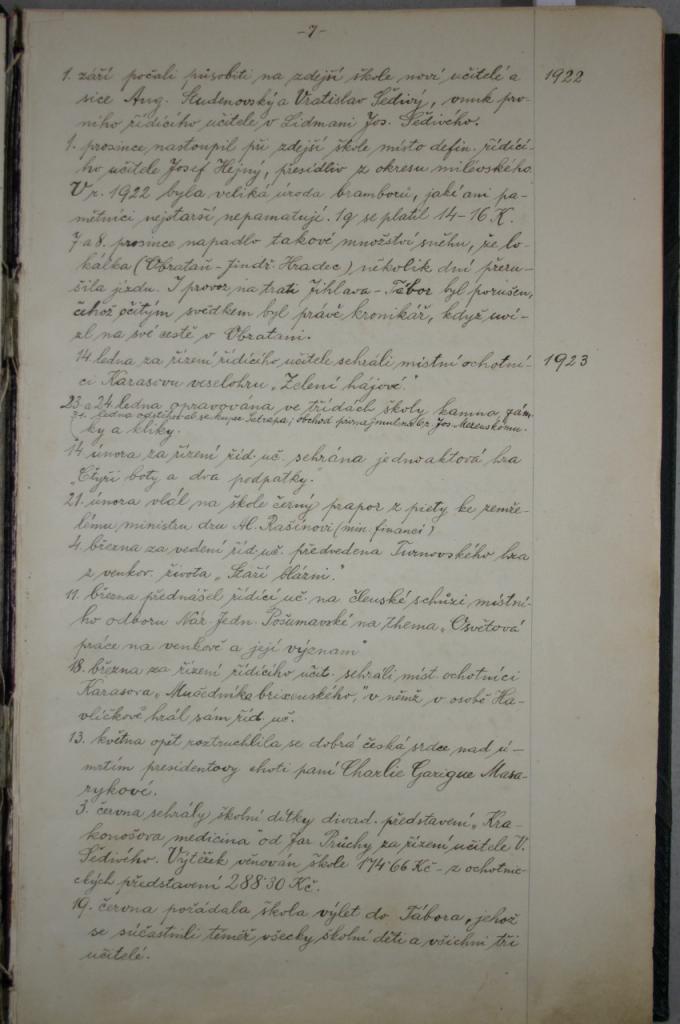 -7-
1. září počali působiti na zdejší škole noví učitelé a 1922
sice Aug. Studenovský a Vratislav Šedivý, vnuk prv-
ního řídícího učitele v Lidmani Jos. Šedivého.
1. prosince nastoupil při zdejší škole místo defin. řídící-
ho učitele Josef Hejný, přesídliv z okresu milévského.
V r. 1922 byla veliká úroda bramborů, jaké ani pa-
mětníci nejstarší nepamatují. 1q se platil 14-16 K.
7 a 8. prosince napadlo takové množství sněhu, že lo-
kálka (Obrataň - Jindř. Hradec) několik dní přeru-
šila jízdu. I provoz na trati Jihlava - Tábor byl porušen,
čehož očitým svědkem byl právě kronikář, když uvíz-
zl na své cestě v Obratani.
14. ledna za řízení řídícího učitele sehráli místní ochotní- 1923
ci Karasovu veselohru "Zelení hájové."
23 a 24 ledna opravována ve třídách školy kamna, zám-
ledna se kupec Petrapa; obchod Jos.
ky a kliky.
14 února za řízení říd. uč. sehrána jednoaktová hra
"Čtyři boty a dva podpatky."
21. února vlál na škole černý prapor z piety ke zemře-
lému ministru dru Al. Rašínovi (min. financí)
4. března za vedení říd. uč. předvedena Turnovského hra
z venkov. života "Staří blázni."
11. března přednášel řídící uč. na členské schůzi místní-
ho odboru Nár. Jedn. Pošumavské na thema "Osvětová
práce na venkově a její význam"
18. března za řízení řídícího učit. sehráli míst. ochotníci
Karasova "Mučedníka brixenského," v němž v osobě Ha-
vlíčkově hrál sám říd. uč.
13. května opět roztruchlila se dobrá česká srdce nad ú-
mrtím presidentovy choti paní Charlie Garigue Masa-
rykové.
3. června sehrály školní dítky divad. představení "Kra-
konošova medicina" od Jar Průchy za řízení učitele V.
Šedivého. Výtěžek věnován škole 174·66 Kč - z ochotnic-
kých představení 288·30 Kč.
19. června pořádala škola výlet do Tábora, jehož
se súčastnili téměř všecky školní děti a všichni tři
učitelé.